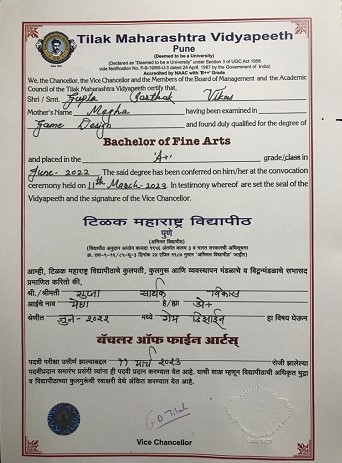 Tilak Maharashtra Vidyapeeth
Pune
(Deemed to be a University)
(Declared as "Deemed to be a University" under Section 3 of UGC Act 1956
vide Notification No. F-9-19/85-U-3 dated 24 April, 1987 by the Government of India)
Accredited by NAAC with "B++" Grade
We, the Chancellor, the Vice Chancellor and the Members of the Board of Management and the Academic
Council of the Tilak Maharashtra Vidyapeeth certify that,
Shri / Smt. Gupta Sarthak Vikas
Mother's Name Megha having been examined in
Game Design and found duly qualified for the degree of
Bachelor of Fine Arts
and placed in the 'A+' grade/class in
June - 2022. The said degree has been conferred on him/her at the convocation
ceremony held on 11th March-2023. In testimony whereof are set the seal of
Vidyapeeth and the signature of the Vice Chancellor.
टिळक महाराष्ट्र विद्यापीठ
पुणे
(अभिमत विद्यापीठ)
आम्ही, टिळक महाराष्ट्र विद्यापीठाचे कुलपती, कुलगुरू आणि व्यवस्थापन मंडळाचे व विद्वन्मंडळाचे सभासद
प्रमाणित करितो की,
श्री./श्रीमती गुप्ता सार्थक विकास
आईचे नाव मेघा हे/ह्या अे+
श्रेणीत जुन - २०२२ मध्ये गेम डिझाईन हा विषय घेऊन
बॅचलर ऑफ फाईन आर्टस्
पदवी परीक्षा उत्तीर्ण झाल्याबद्दल ११ मार्च २०२३ रोजी झालेल्या
पदवीप्रदान समारंभ प्रसंगी त्यांना ही पदवी प्रदान करण्यात येत आहे. याची साक्ष म्हणून विद्यापीठाची अधिकृत मुद्रा
व विद्यापीठाच्या कुलगुरूंची स्वाक्षरी येथे अंकित करण्यात येत आहे.
G.D. Tilak
Vice Chancellor